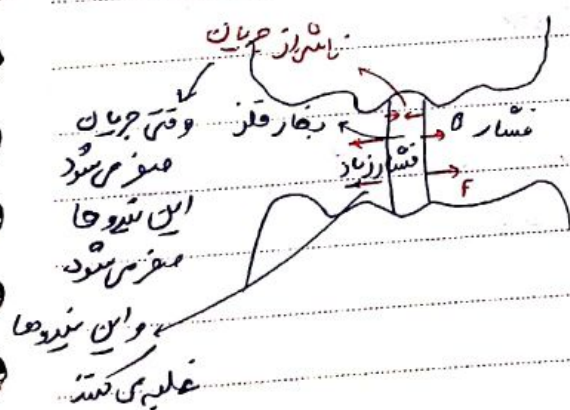 ناشی از جریان
وقتی جریان
صفر می‌شود
این نیروها
صفر می‌شود
و این نیروها
غلبه می‌کنند
بخار فلز
فشار زیاد
فشار B
F